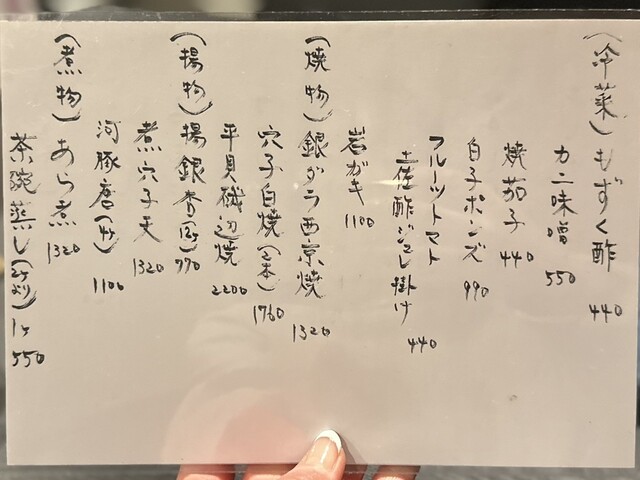 (冷菜)もずく酢 440
カニ味噌 550
焼茄子 440
白子ポンズ 990
フルーツトマト
土佐酢ジュレ掛け 440
岩ガキ 1100
(焼物)銀ダラ西京焼 1320
穴子白焼(2本) 1760
平貝磯辺焼 2200
(揚物)揚銀杏 770
煮穴子天 1320
河豚唐 1100
(煮物)あら煮 1320
茶碗蒸し(2ケより)1ケ 550